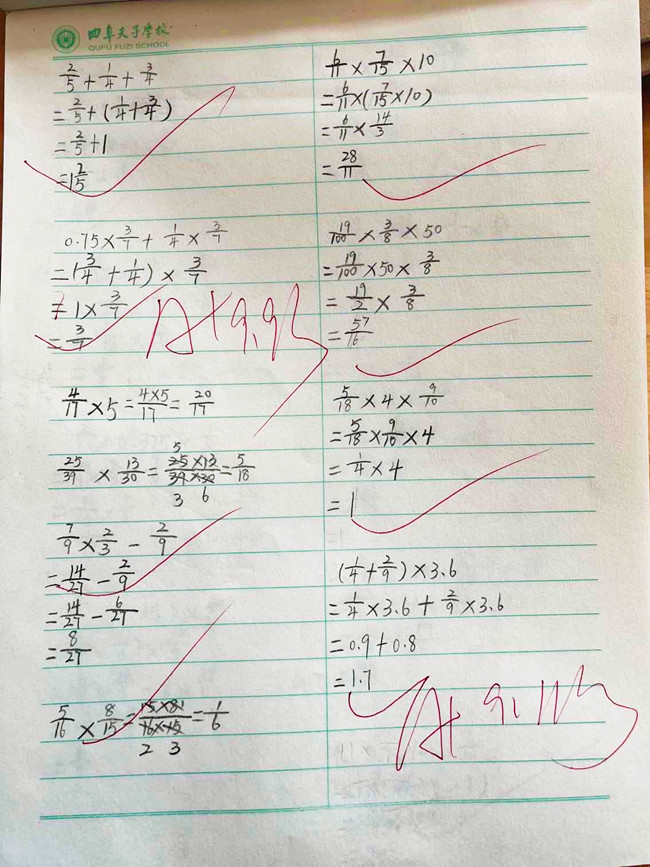 曲阜夫子学校
QUFU FUZI SCHOOL
2/5 + 1/4 + 3/4
= 2/5 + (1/4 + 3/4)
= 2/5 + 1
= 1 2/5
0.75 × 3/7 + 1/4 × 3/7
= (3/4 + 1/4) × 3/7
= 1 × 3/7
= 3/7
A+ 9.9
4/17 × 5 = 4×5/17 = 20/17
25/39 × 13/30 = 25×13/39×30 = 5/18
5
3 6
7/9 × 2/3 - 2/9
= 14/27 - 2/9
= 14/27 - 6/27
= 8/27
5/16 × 8/15 = 15×81/16×15 = 1/6
2 3
6/11 × 7/15 × 10
= 6/11 × (7/15 × 10)
= 6/11 × 14/3
= 28/11
19/100 × 3/8 × 50
= 19/100 × 50 × 3/8
= 19/2 × 3/8
= 57/16
5/18 × 4 × 9/10
= 5/18 × 9/10 × 4
= 1/4 × 4
= 1
(1/4 + 2/9) × 3.6
= 1/4 × 3.6 + 2/9 × 3.6
= 0.9 + 0.8
= 1.7
A+ 9.11